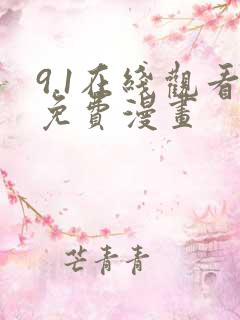 9.1在綫觀看
免費漫畫
芒青青